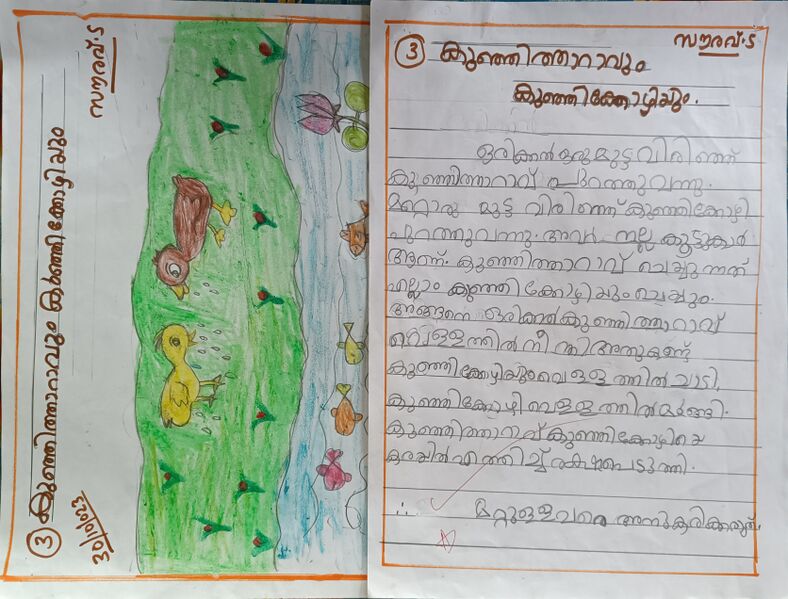 ③ കുഞ്ഞിത്താറാവും കുഞ്ഞിക്കോഴിയും
സൗരവ്.ട
30/10/023
സൗരവ്.ട
③ കുഞ്ഞിത്താറാവും
കുഞ്ഞിക്കോഴിയും.
ഒരിക്കൽ ഒരു മുട്ട വിരിഞ്ഞ്
കുഞ്ഞിത്താറാവ് പുറത്തുവന്നു.
മറ്റൊരു മുട്ട വിരിഞ്ഞ് കുഞ്ഞിക്കോഴി
പുറത്തുവന്നു. അവർ നല്ല കൂട്ടുകാർ
ആണ്. കുഞ്ഞിത്താറാവ് ചെയ്യുന്നത്
എല്ലാം കുഞ്ഞിക്കോഴിയും ചെയ്യും.
അങ്ങനെ ഒരിക്കൽ കുഞ്ഞിത്താറാവ്
വെള്ളത്തിൽ നീന്തി അതുകണ്ട്
കുഞ്ഞിക്കോഴിയും വെള്ളത്തിൽ ചാടി,
കുഞ്ഞിക്കോഴി വെള്ളത്തിൽ മുങ്ങി.
കുഞ്ഞിത്താറാവ് കുഞ്ഞിക്കോഴിയെ
കരയിൽ എത്തിച്ച് രക്ഷപെടുത്തി.
∴ മറ്റുള്ളവരെ അനുകരിക്കരുത്.